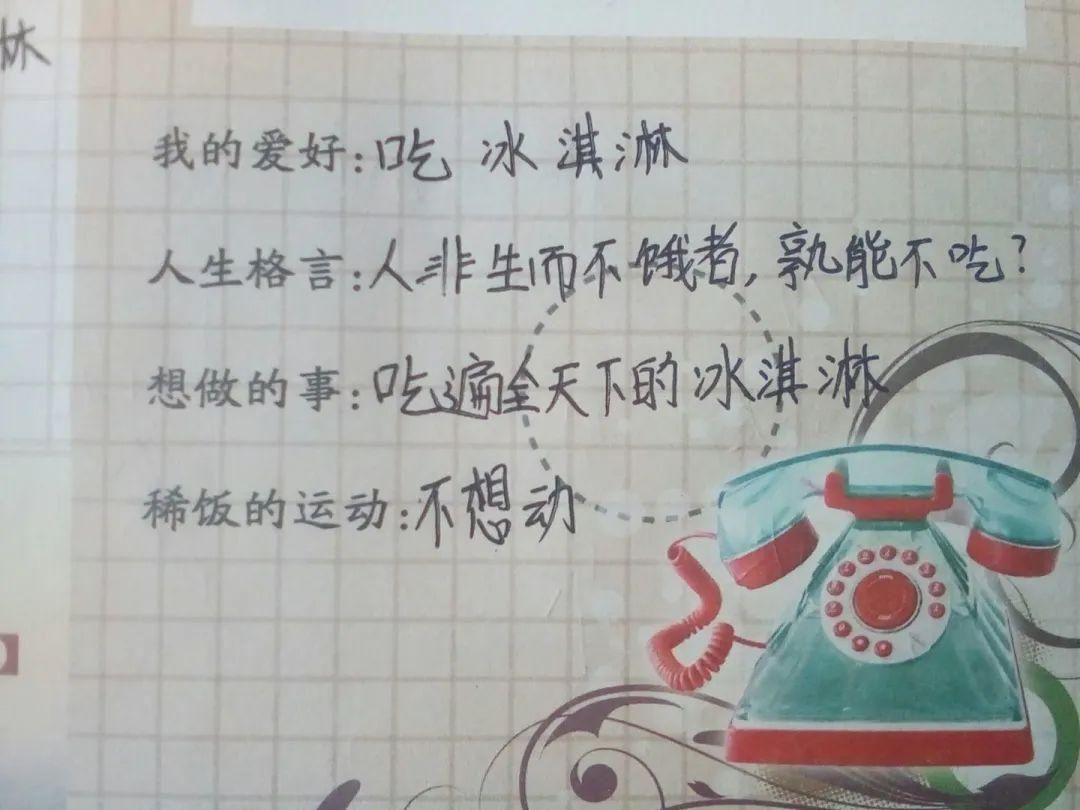 林
我的爱好:吃冰淇淋
人生格言:人非生而不饿者,孰能不吃?
想做的事:吃遍全天下的冰淇淋
稀饭的运动:不想动
】